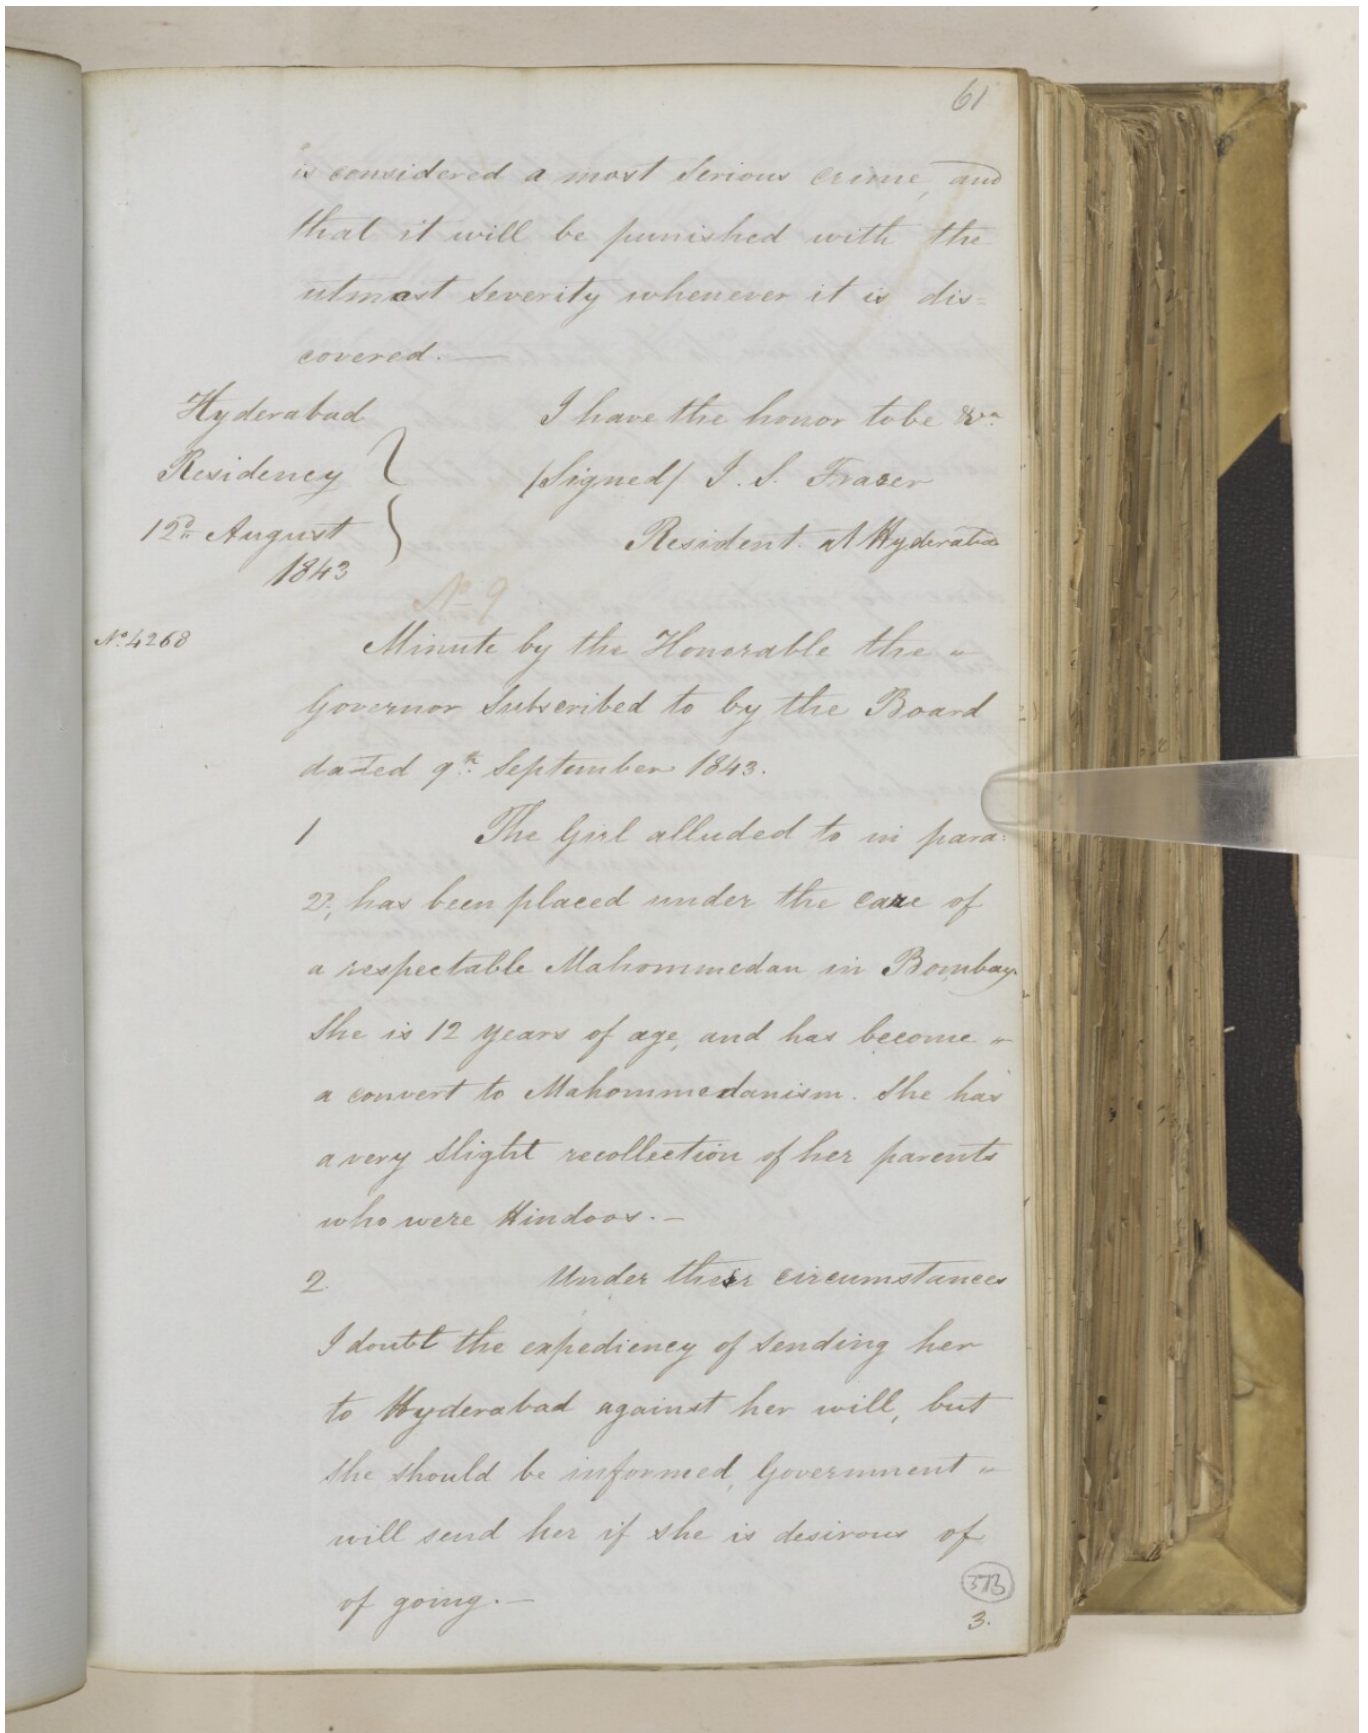 61
is considered a most serious crime, and
that it will be punished with the
utmost severity whenever it is dis=
covered. —
Hyderabad
Residency
12th August
1843
I have the honor to be &ca
/Signed/ J. S. Fraser
Resident at Hyderabad
No 9
No. 4268
Minute by the Honorable the "
Governor subscribed to by the Board
dated 9th September 1843.
1 The Girl alluded to in para:
2d, has been placed under the care of
a respectable Mahommedan in Bombay.
She is 12 years of age, and has become "
a convert to Mahommedanism. She has
a very slight recollection of her parents
who were Hindoos. —
2. Under their circumstances
I doubt the expediency of sending her
to Hyderabad against her will, but
she should be informed, Government "
will send her if she is desirous of
of going. —
3.